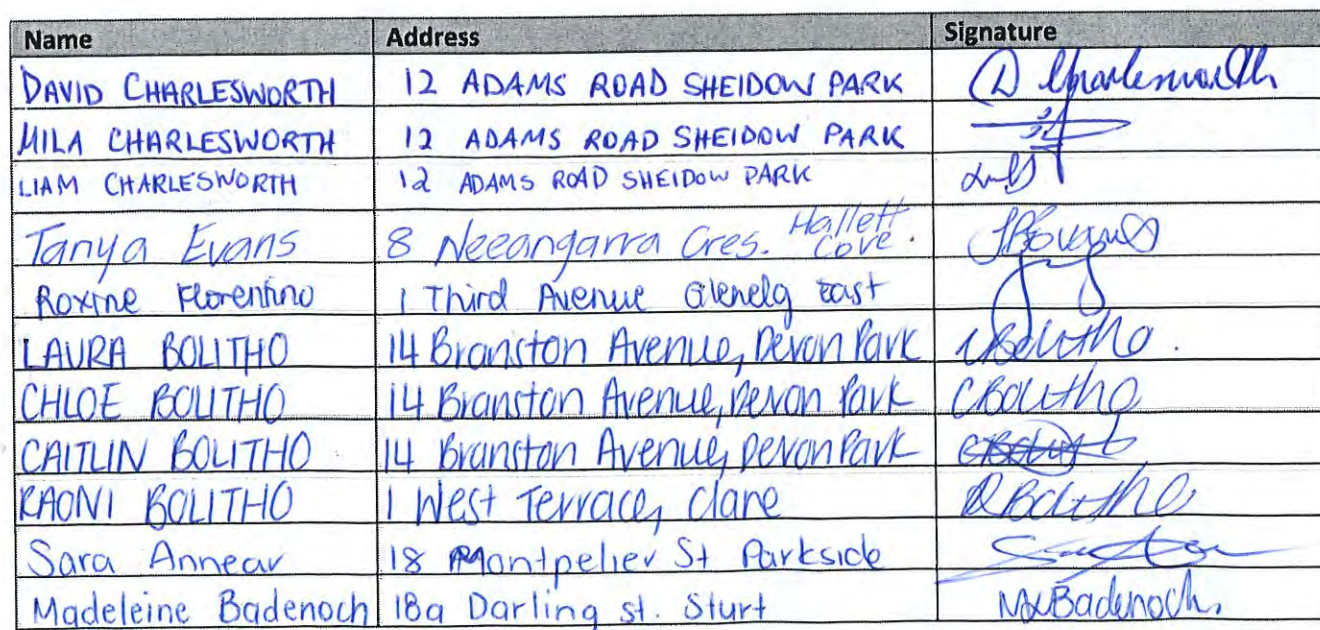 Name Address Signature
DAVID CHARLESWORTH 12 ADAMS ROAD SHEIDOW PARK D Charlesworth
MILA CHARLESWORTH 12 ADAMS ROAD SHEIDOW PARK
LIAM CHARLESWORTH 12 ADAMS ROAD SHEIDOW PARK
Tanya Evans 8 Neeangarra Cres. Hallett Cove.
Roxine Florentino 1 Third Avenue Glenelg East
LAURA BOLITHO 14 Branston Avenue, Devon Park LBolitho.
CHLOE BOLITHO 14 Branston Avenue, Devon Park CBolitho
CAITLIN BOLITHO 14 Branston Avenue, Devon Park
RAONI BOLITHO 1 West Terrace, Clare RBolitho
Sara Annear 18 Montpelier St Parkside
Madeleine Badenoch 18a Darling st. Sturt MBadenoch.